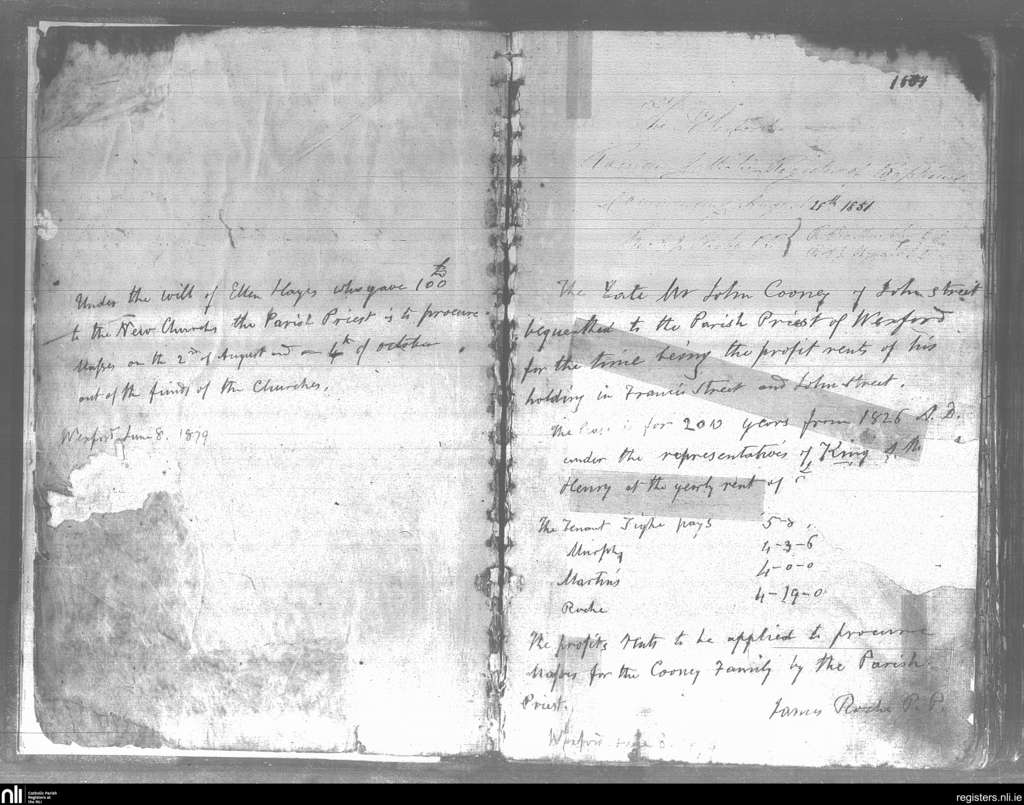 Under the will of Ellen Hayes who gave 100£
to the New Churches the Parish Priest is to procure
Masses on the 2nd of August and on 4th of october
out of the funds of the Churches.
Wexford June 8. 1879
25th 1851
The Late Mr John Cooney of John street
bequeathed to the Parish Priest of Wexford
for the time being the profit rents of his
holding in Francis Street and John street.
The lease is for 200 years from 1826 A.D.
under the representatives of King
Henry at the yearly rent of £
The Tenant Tighe pays 5-0
Murphy 4-3-6
Martins 4-0-0
Roche 4-19-0
The profits rents to be applied to procure
Masses for the Cooney Family by the Parish
Priest.
James Roche P.P.
Wexford June 8
nli
Catholic Parish
Registers at
the NLI
registers.nli.ie